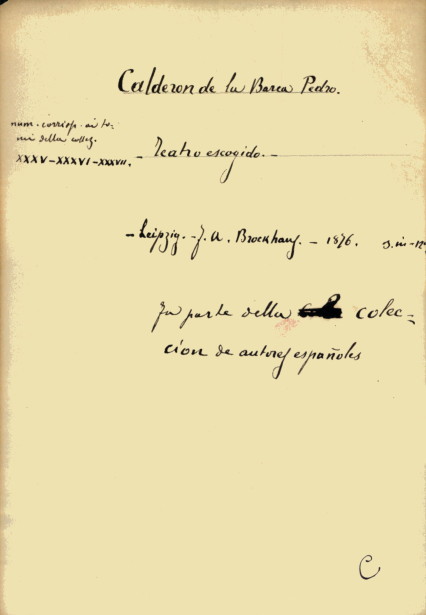 Calderon de la Barca Pedro.
num. corrisp. ai to-
mi della collez.
XXXV-XXXVI-XXXVII. - Teatro escogido. -
- Leipzig. - J. A. Brockhaus. - 1876. 3. in-12º
Fa parte della colec-
cion de autores españoles
C